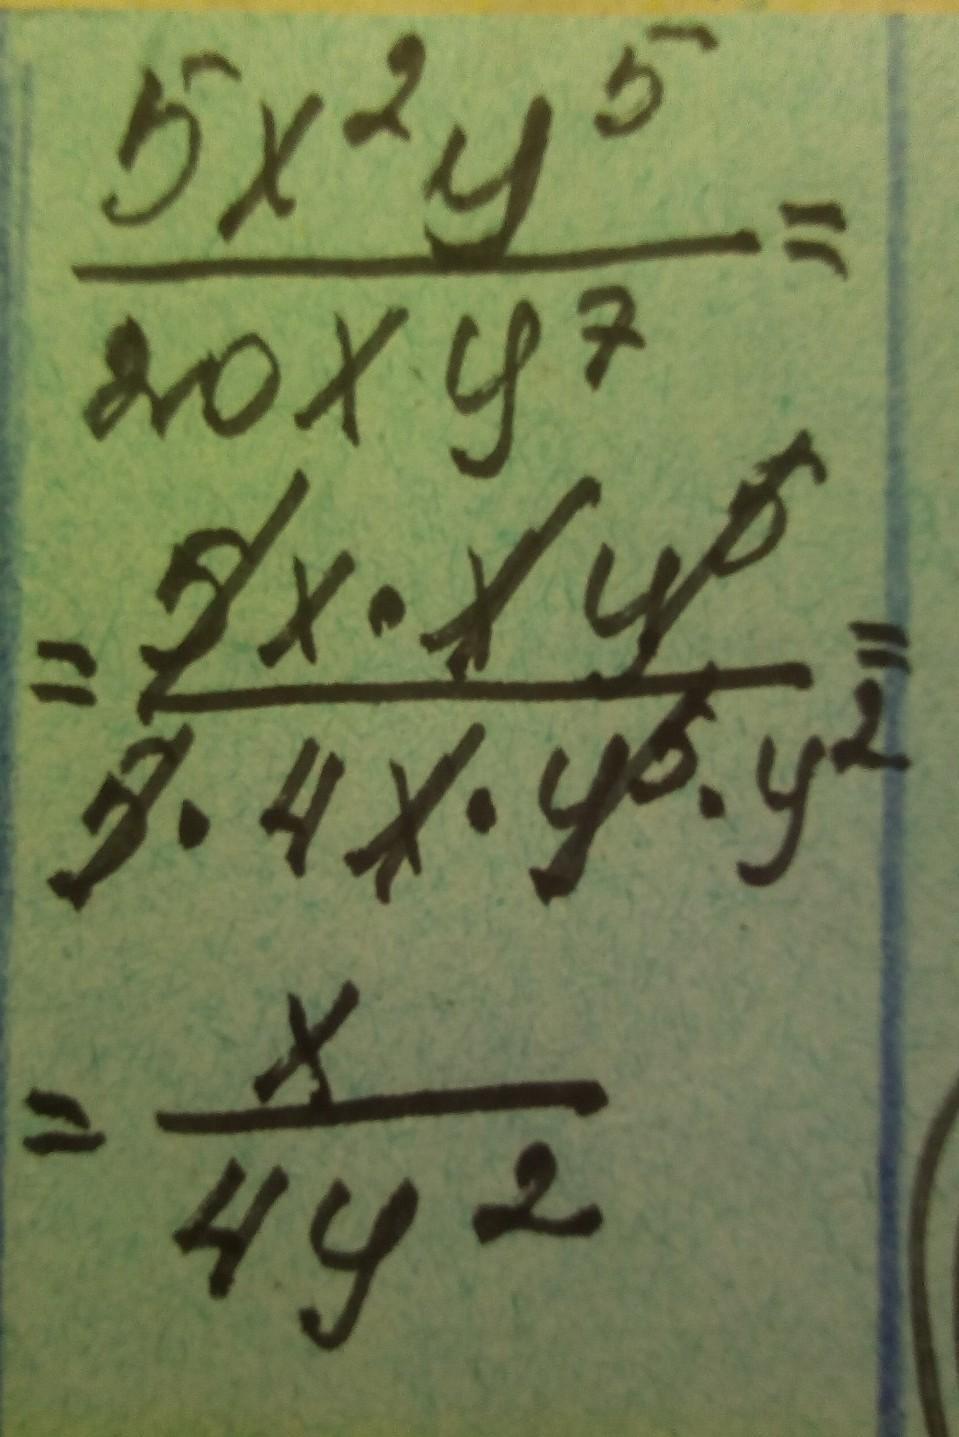 5x²y⁵
20xy⁷ =
= 5x·xy⁵
5·4x·y⁵·y² =
= x
4y²